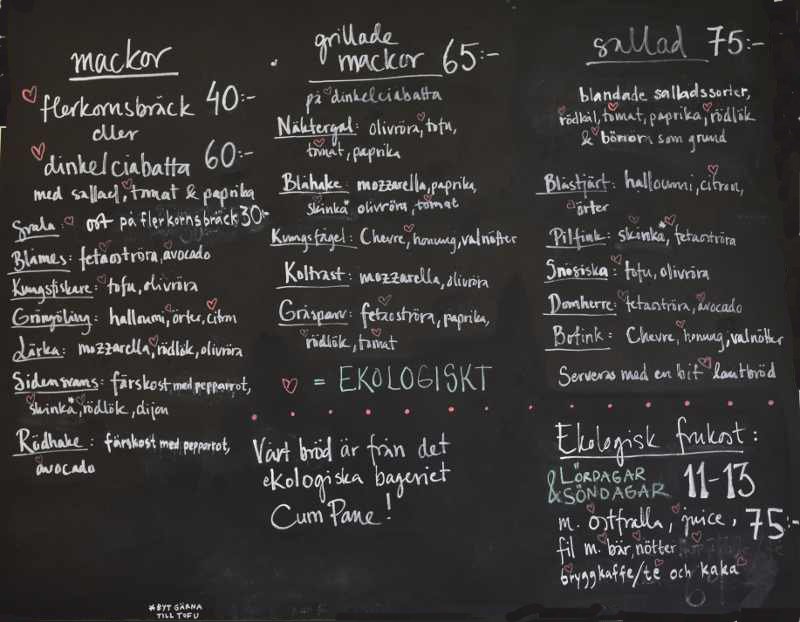 mackor
flerkornsbräck 40:-
eller
dinkelciabatta 60:-
med sallad, tomat & paprika
Svala: ost på flerkornsbräck 30:-
Blåmes: fetaoströra, avocado
Kungsfiskare: tofu, olivröra
Gröngöling: halloumi, örter, citron
Lärka: mozzarella, rödlök, olivröra
Sidensvans: färskost med pepparrot,
skinka*, rödlök, dijon
Rödhake: färskost med pepparrot,
avocado
*BYT GÄRNA
TILL TOFU
grillade
mackor 65:-
på dinkelciabatta
Näktergal: olivröra, tofu,
tomat, paprika
Blåhake: mozzarella, paprika,
skinka* olivröra, tomat
Kungsfågel: Chevre, honung, valnötter
Koltrast: mozzarella, olivröra
Gråsparv: fetaoströra, paprika,
rödlök, tomat
= EKOLOGISKT
Vårt bröd är från det
ekologiska bageriet
Cum Pane!
sallad 75:-
blandade salladssorter,
rödkål, tomat, paprika, rödlök
& bönor som grund
Blåstjärt: halloumi, citron,
örter
Pilfink: skinka*, fetaoströra
Snösiska: tofu, olivröra
Domherre: fetaoströra, avocado
Bofink: Chevre, honung, valnötter
Serveras med en bit lantbröd
Ekologisk frukost:
LÖRDAGAR
& SÖNDAGAR 11-13
m. ostfralla, juice, 75:-
fil m. bär, nötter
bryggkaffe/te och kaka